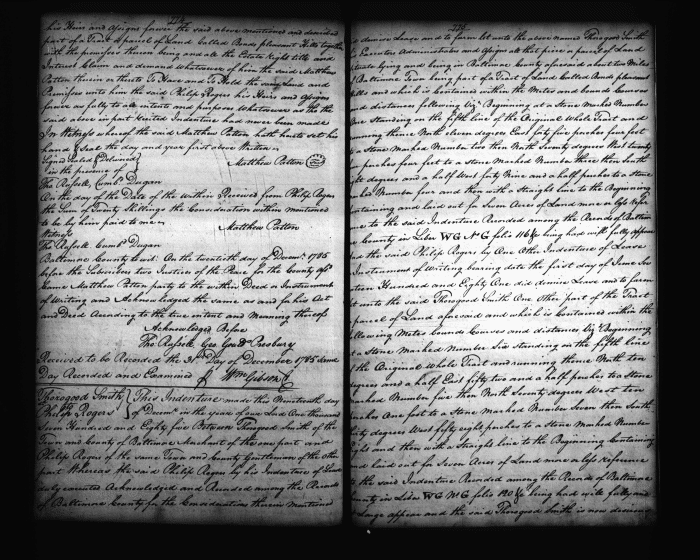 224
his Heirs and Assigns forever the said above mentioned and described
part of a Tract or parcel of Land Called Bonds pleasant Hills together
with the premises thereon being and all the Estate Right title and
Interest Claim and demand Whatsoever of him the said Matthew
Patton therein or thereto To Have and To Hold the said Land and
Premises unto him the said Philip Rogers his Heirs and Assigns
forever as fully to all intents and purposes Whatsoever as tho the
said above in part Recited Indenture had never been made
In Witness whereof the said Matthew Patton hath hereto set his
hand & Seal the day and year first above Written
Signed Sealed & Delivered
in the presence of
Matthew Patton Seal
Tho Russell Cumb. Dugan
On the day of the Date of the Within Received from Philip Rogers
the Sum of Twenty Shillings the Consideration within mentioned
to be by him paid to me
Witness
Matthew Patton
Tho Russell Cumb Dugan
Baltimore County to wit: On the twentieth day of Decem. 1785
before the Subscribers two Justices of the Peace for the County afs.
Came Matthew Patton party to the within Deed or Instrument
of Writing and Acknowledged the same as and for his Act
and Deed According to the true intent and Meaning thereof
Acknowledged Before
Tho Russell Geo Gou Presbury
Received to be Recorded the 31 Day of December 1785 same
Day Recorded and Examined
Wm Gibson
Thorogood Smith
Philip Rogers
This Indenture made this Nineteenth day
of Decem. in the year of our Lord One thousand
Seven Hundred and Eighty five Between Thorogood Smith of the
Town and County of Baltimore Merchant of the one part and
Philip Rogers of the same Town and County Gentleman of the other
part Whereas the said Philip Rogers by his Indenture of Lease
duly executed Acknowledged and Recorded among the Records
of Baltimore County for the Considerations therein mentioned
225
demise Lease and to farm let unto the above named Thorogood Smith
Executors Administrators and Assigns all that piece or parcel of Land
situate lying and being in Baltimore County aforesaid about two Miles
Baltimore Town being part of a Tract of Land Called Bonds pleasant
Hills and which is Contained within the Metes and bounds Courses
and distances following Viz. Beginning at a Stone Marked Number
One Standing on the fifth line of the Original Whole Tract and
running thence North eleven degrees East forty five perches four feet
to a Stone Marked Number two then North Seventy degrees West twenty
perches four feet to a Stone Marked Number three then South
degrees and a half West forty Nine and a half perches to a Stone
Marked Number four and then with a Straight line to the Beginning
Containing and laid out for Seven Acres of Land more or less Refer
to the said Indenture Recorded among the Records of Baltim
County in Liber WG No G folio 116 being had will fully appear
and the said Philip Rogers by One Other Indenture of Lease
Instrument of Writing bearing date the first day of June Sev
Hundred and Eighty One did demise Leave and to farm
let unto the said Thorogood Smith One other part of the Tract
parcel of Land afs said and which is Contained within the
following Metes bounds Courses and distances Viz. Beginning
at a Stone Marked Number Six Standing on the fifth line
of the Original Whole Tract and running thence North ten
degrees and a half East fifty two and a half perches to a Stone
Marked Number five then North Seventy degrees West ten
One feet to a Stone Marked Number Seven then South
degrees West fifty eight perches to a Stone Marked Number
eight and then with a Straight line to the Beginning Containing
and laid out for Seven Acres of Land more or less Reference
to the said Indenture Recorded among the Records of Baltimore
County in Liber WG No G folio 120 being had will fully and
Large appear and the said Thorogood Smith is now desirous